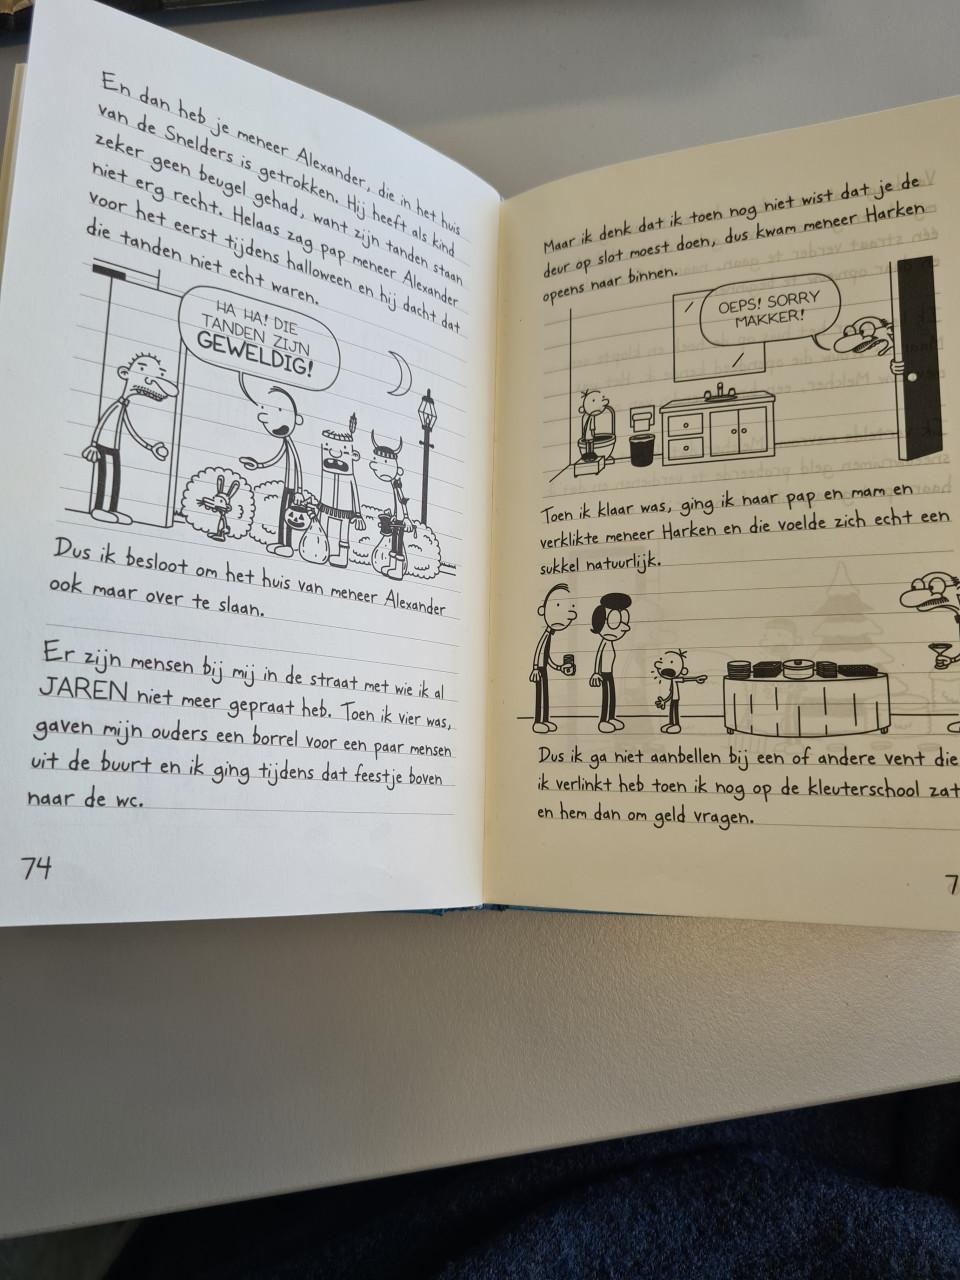 En dan heb je meneer Alexander, die in het huis
van de Snelders is getrokken. Hij heeft als kind
zeker geen beugel gehad, want zijn tanden staan
niet erg recht. Helaas zag pap meneer Alexander
voor het eerst tijdens halloween en hij dacht dat
die tanden niet echt waren.
HA HA! DIE
TANDEN ZIJN
GEWELDIG!
Dus ik besloot om het huis van meneer Alexander
ook maar over te slaan.
Er zijn mensen bij mij in de straat met wie ik al
JAREN niet meer gepraat heb. Toen ik vier was,
gaven mijn ouders een borrel voor een paar mensen
uit de buurt en ik ging tijdens dat feestje boven
naar de wc.
74
Maar ik denk dat ik toen nog niet wist dat je de
deur op slot moest doen, dus kwam meneer Harken
opeens naar binnen.
OEPS! SORRY
MAKKER!
Toen ik klaar was, ging ik naar pap en mam en
verklikte meneer Harken en die voelde zich echt een
sukkel natuurlijk.
Dus ik ga niet aanbellen bij een of andere vent die
ik verlinkt heb toen ik nog op de kleuterschool zat
en hem dan om geld vragen.
7